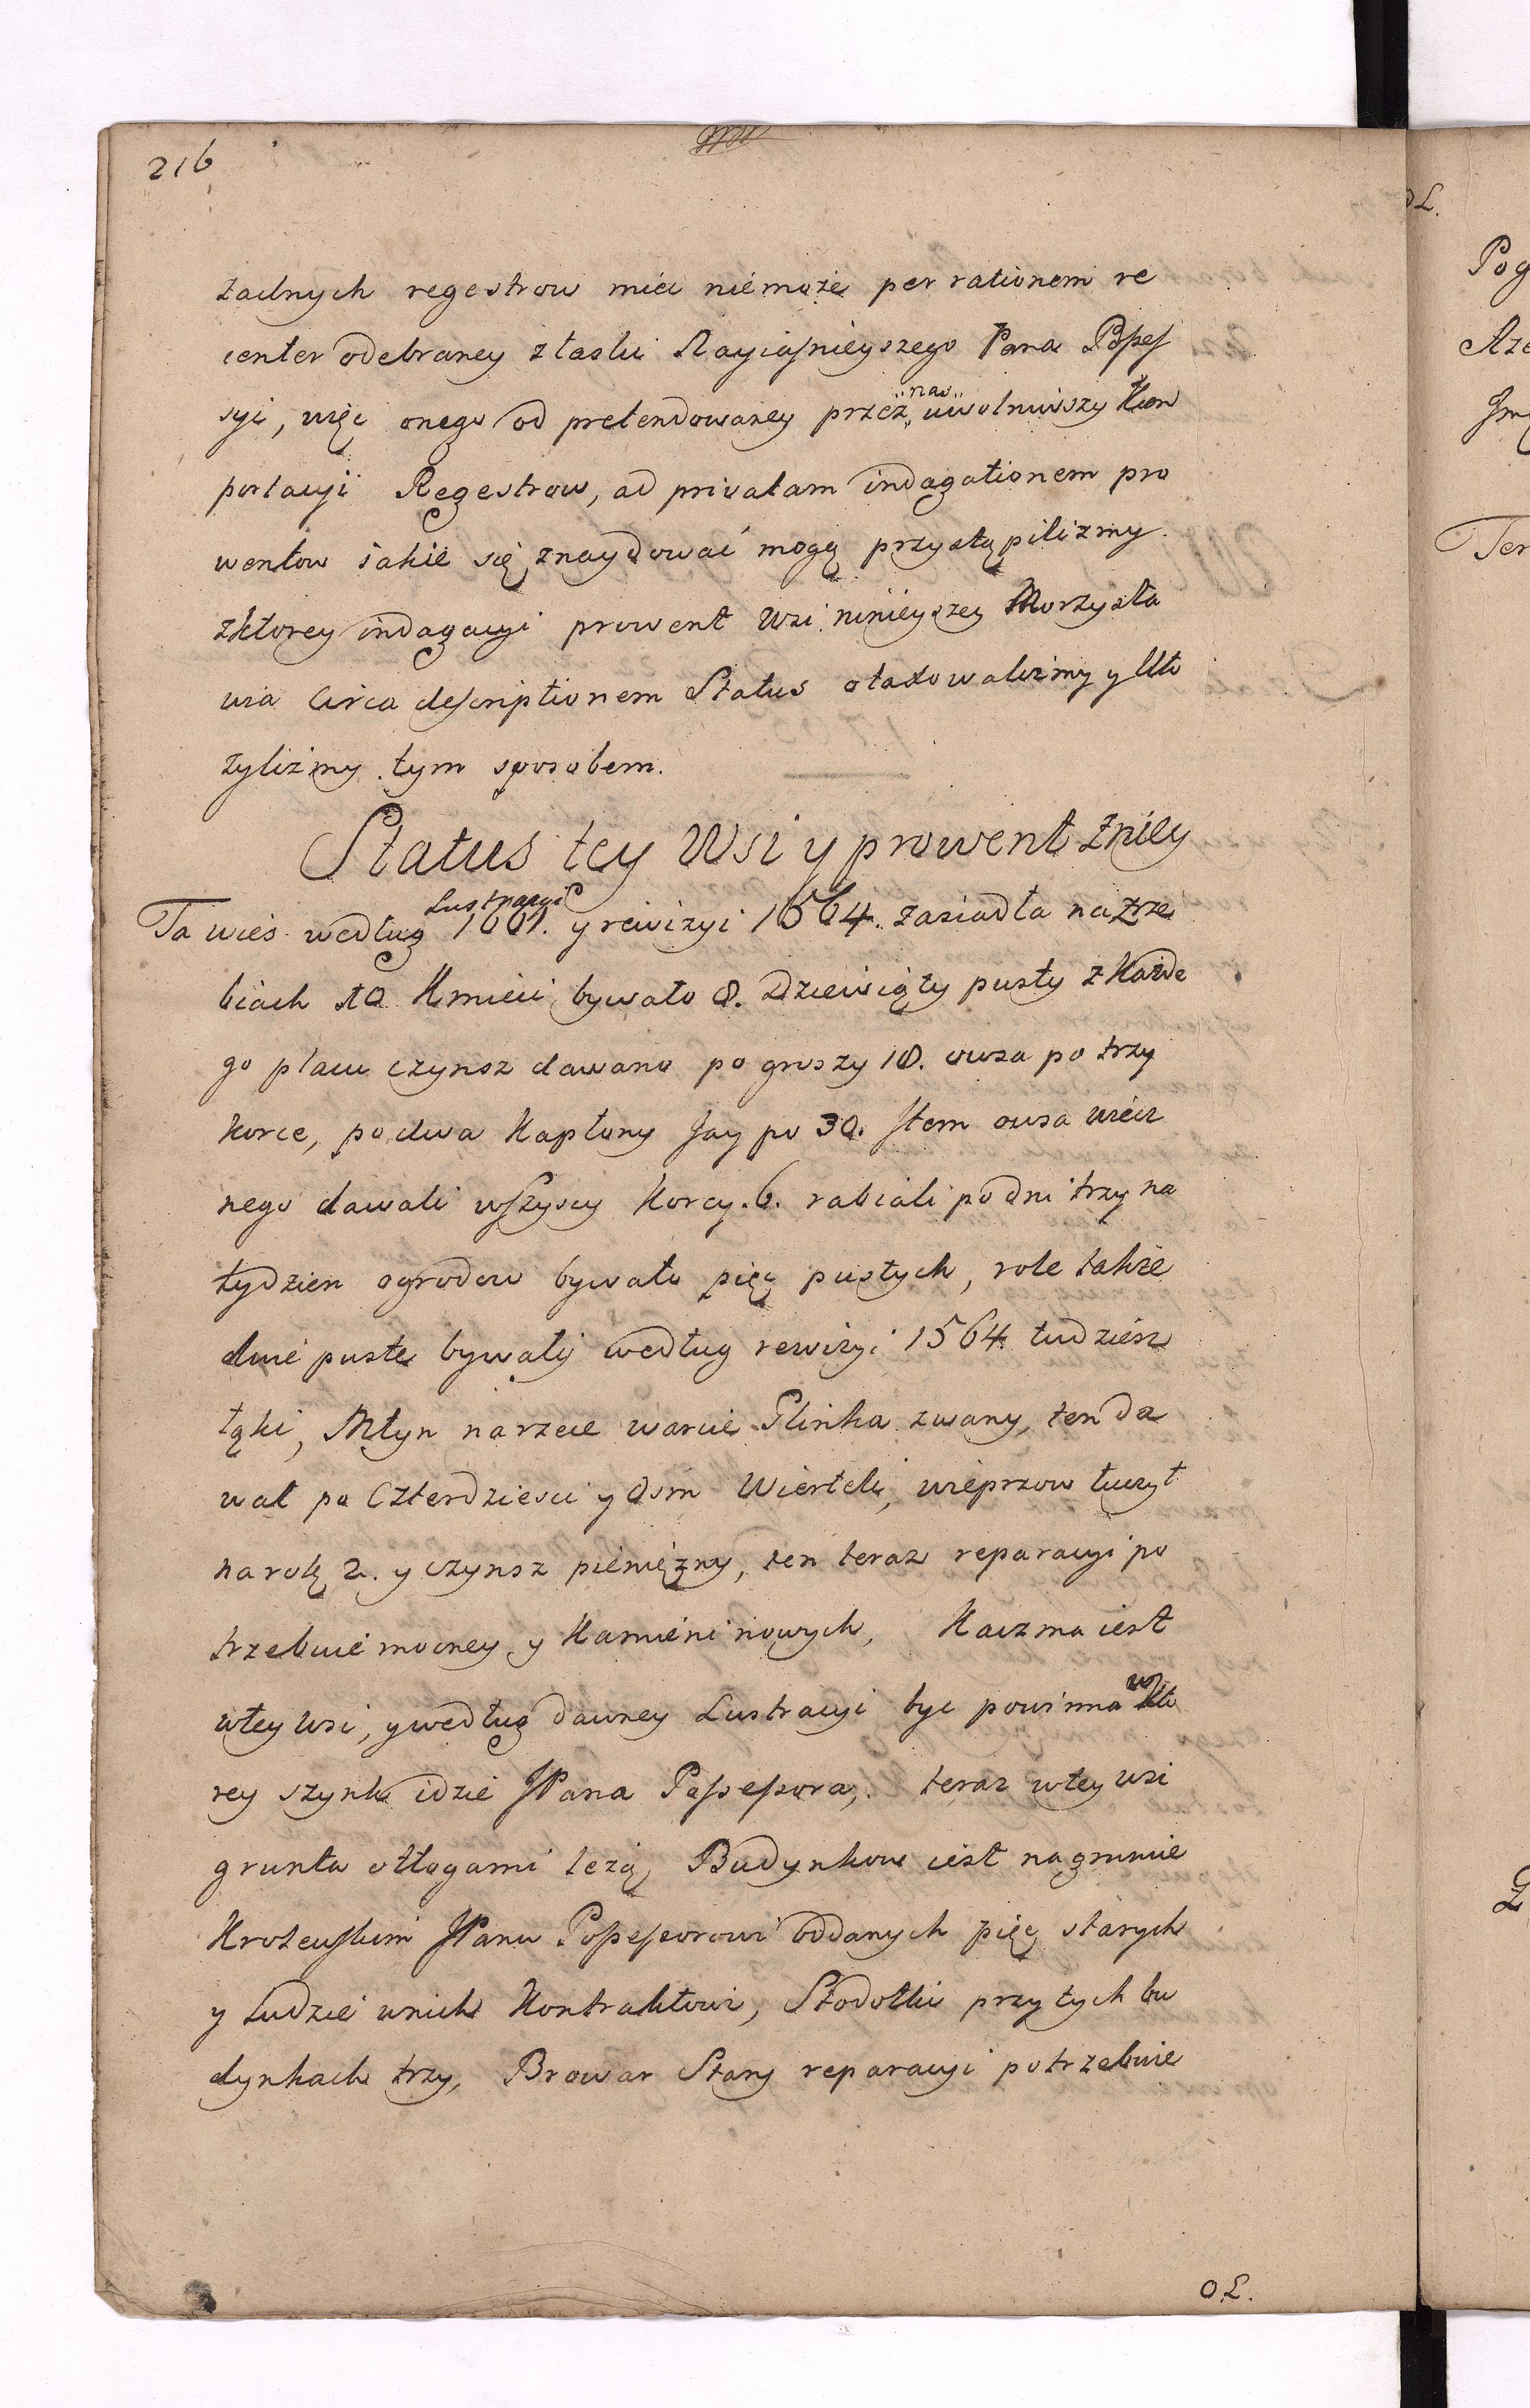 216
żadnych regestrow mieć niemoże per rationem re
center odebraney z łaski Nayiasnieyszego Pana Posses
syi, więc onego od pretendowaney przez „nas„ uwolniwszy Kom
portacyi Regestrow, ad privatam indagationem pro
wentow iakie się znaydować mogą przystąpiliżmy.
zktorey indagacyi prowent Wsi ninieyszey Morzysła
wia Circa descriptionem Status otaxowaliżmy y Uło
zyliżmy tym sposobem.
Status tey Wsi y prowent zniey
Ta wieś według Lustracyi 1661. y rewizyi 1564. zasiadła na zre
biach 10 Kmieci bywało 8. Dziewiąty pusty z Każde
go placu czynsz dawano po groszy 18. owsa po trzy
Korce, po dwa Kapłony Jay po 30. Item owsa wiecz
nego dawali wszyscy Korcy. 6. rabiali po dni trzy na
tydzien ogrodow bywało pięć pustych, role także
dwie puste bywały według rewizyi 1564 tudziesz
łąki, Młyn narzece warcie Glinka zwany, ten da
wał po Czterdziesci y Osm Wierteli, wieprzow tuczył
narok 2. y czynsz pieniężny, ten teraz reparacyi po
trzebuie mocney y Kamieni nowych, Kaczma iest
wtey wsi, ywedług dawney Lustracyi byc powinna w Kto
rey szynk idzie JPana Possessora, teraz wtey wsi
grunta odłogami leżą, Budynkow iest nagruncie
Krolewskim JPanu Possessorowi oddanych pięć starych
y Ludzie wnich Kontraktowi, Stodołki przy tych bu
dynkach trzy, Browar Stary reparacyi potrzebuie
O.L.